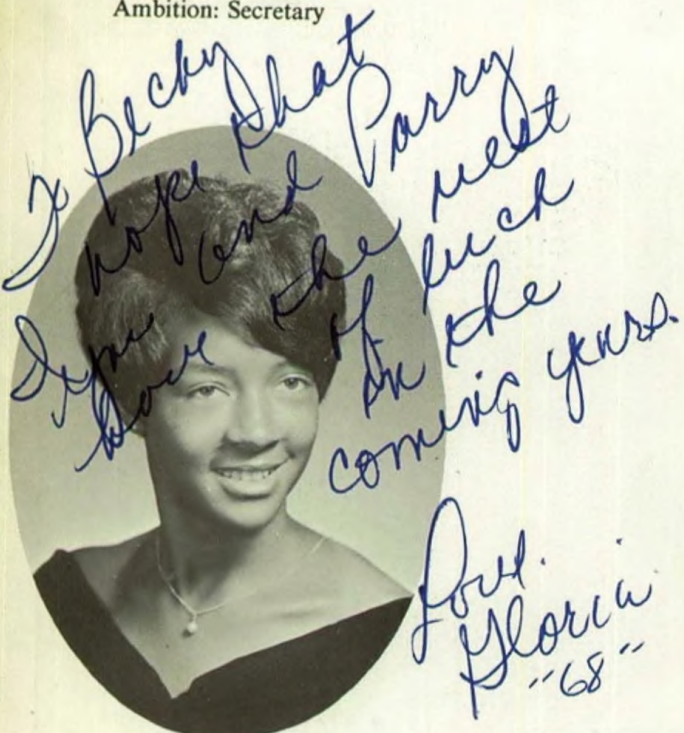 Ambition: Secretary
To Becky
I hope that
you and Parry
have the best
of luck
in the
coming years.
Love.
Gloria
"68"